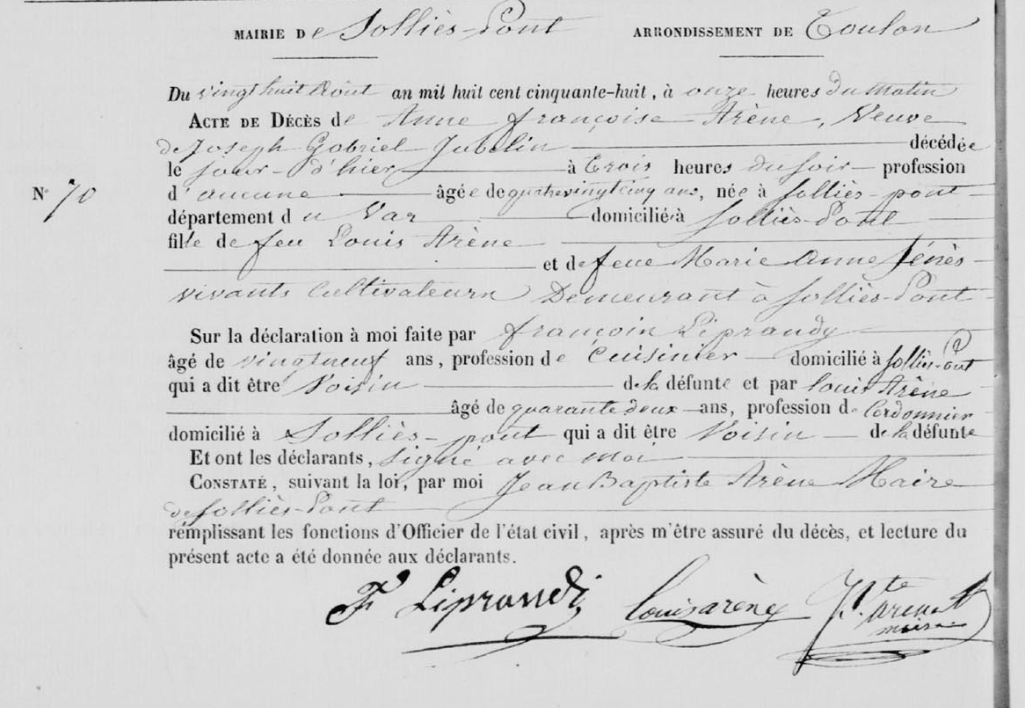 MAIRIE De Solliès-Pont ARRONDISSEMENT DE Toulon
Du vingt huit Aout an mil huit cent cinquante-huit, à onze heures du Matin
ACTE DE DÉCÈS de Anne françoise Arène, Veuve
de Joseph Gabriel Jubelin décédée
le jour d'hier à trois heures du soir profession
N° 70
d'aucune âgée de quatrevingt cinq ans, née à Solliès-pont
département du Var domiciliée à Solliès-Pont
fille de feu Louis Arène
et de feue Marie Anne Sénès
vivants Cultivateurs Demeurant à Solliès-Pont
Sur la déclaration à moi faite par françois Liprandy
âgé de vingtneuf ans, profession de Cuisinier domicilié à Solliès-Pont
qui a dit être Voisin de la défunte et par louis Arène
âgé de quarante deux ans, profession de Cordonnier
domicilié à Solliès-pont qui a dit être Voisin de la défunte
Et ont les déclarants, signé avec moi
CONSTATÉ, suivant la loi, par moi Jean Baptiste Arène Maire
de Solliès-Pont
remplissant les fonctions d'Officier de l'état civil, après m'être assuré du décès, et lecture du
présent acte a été donnée aux déclarants.
F Liprandi louis arène J. Bte arene
maire